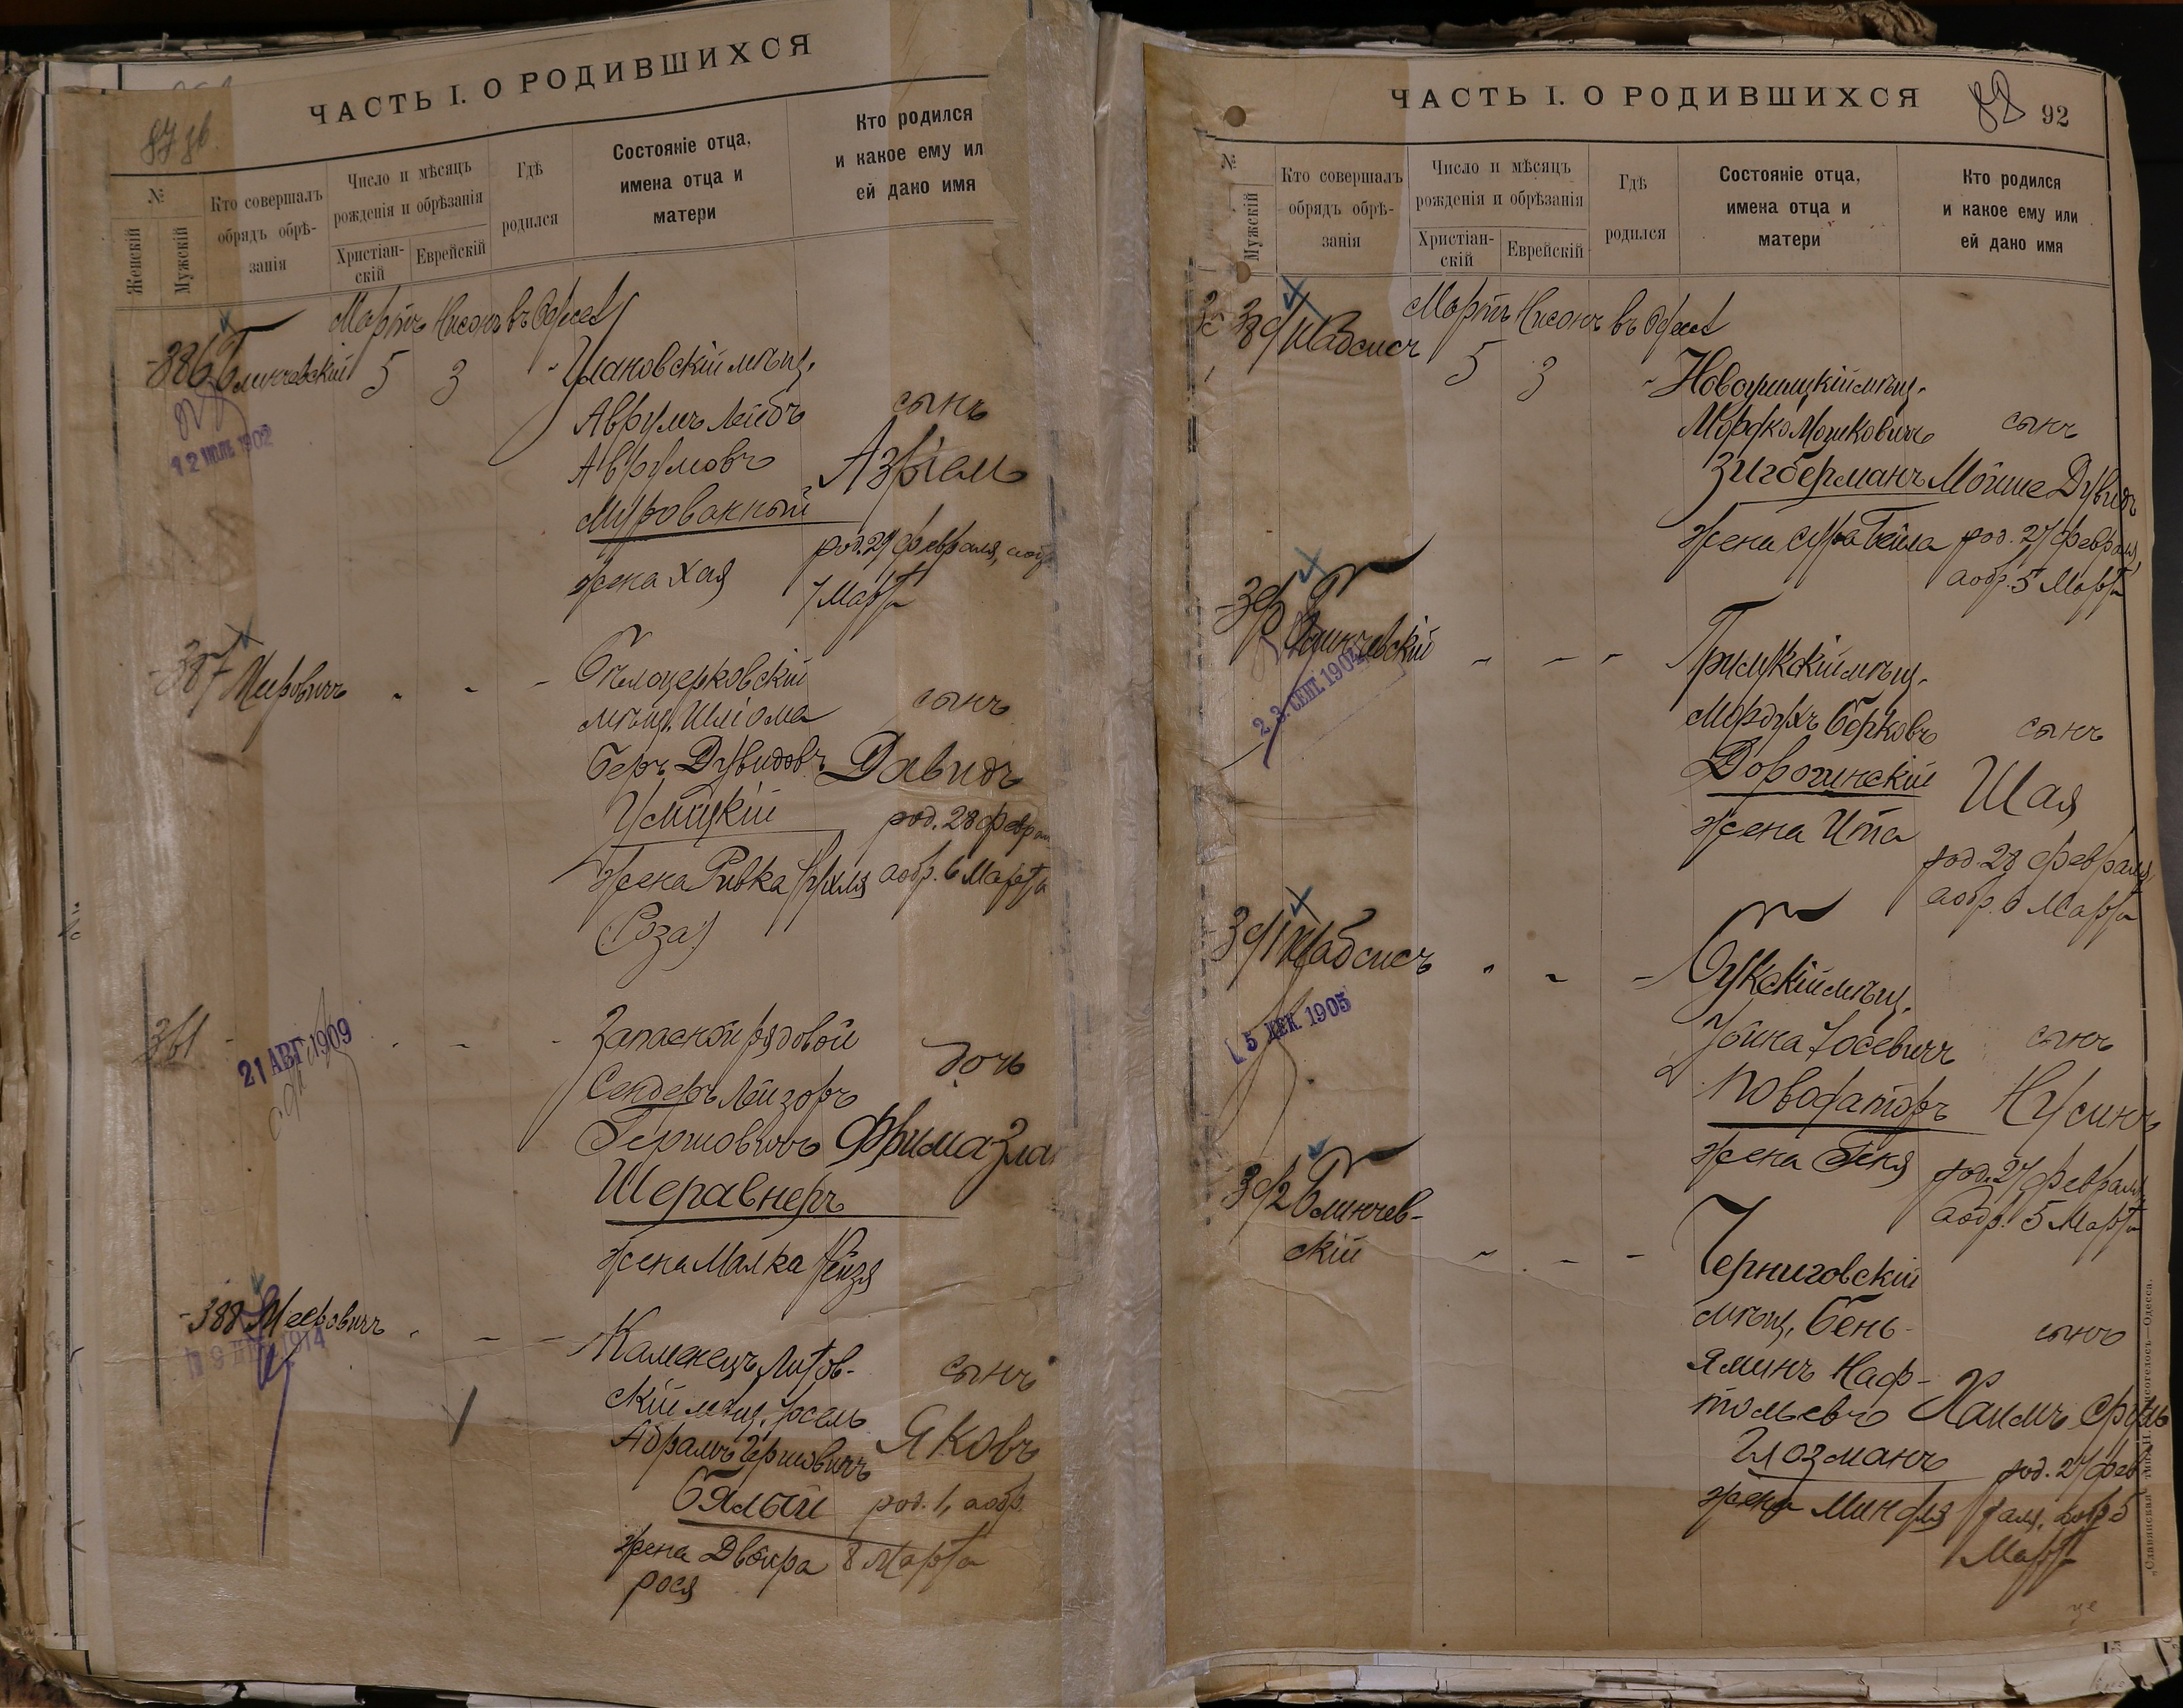 ЧАСТЬ I. О РОДИВШИХСЯ
№
Женскій
Мужскій
Кто совершалъ
обрядъ обрѣ-
занія
Число и мѣсяцъ
рожденія и обрѣзанія
Христіан-
скій
Еврейскій
Гдѣ
родился
Состояніе отца,
имена отца и
матери
Кто родился
и какое ему ил
ей дано имя
Мартъ Нисонъ въ Одессѣ
386 Блинчевскій 5 3
12 1902
мѣщ.
Аврумъ Лейбъ
Аврумовъ
Мурованный
жена Хая
сынъ
Азріель
род. 29 февраля,
7 Марта
387 Мееровичъ
Бѣлоцерковскій
мѣщ. Шліома
Беръ Дувидовъ
Усицкій
жена Ривка Рухля
(Роза)
сынъ
Давидъ
род. 28 февраля
а обр. 6 Марта
361
21 АВГ. 1909
Запасной рядовой
Сендеръ Лейзоръ
Гершовичъ
Шеравнеръ
жена Малка Рейзя
дочь
Фрима Зла
388 Мееровичъ
1914
Каменецъ Литов-
скій мѣщ. Іосель
Абрамъ Гершовичъ
Бялый
жена Двойра
рося
сынъ
Яковъ
род. 1, а обр.
8 Марта
ЧАСТЬ I. О РОДИВШИХСЯ
88 92
№
Мужскій
Кто совершалъ
обрядъ обрѣ-
занія
Число и мѣсяцъ
рожденія и обрѣзанія
Христіан-
скій
Еврейскій
Гдѣ
родился
Состояніе отца,
имена отца и
матери
Кто родился
и какое ему или
ей дано имя
Мартъ Нисонъ въ Одессѣ
389 Шабсисъ 5 3
мѣщ.
Мордко Мошковичъ
Зигберманъ
жена Сура Бейла
сынъ
Мойше Дувидъ
род. 27 февраля,
а обр. 5 Марта
390 Блинчевскій
23 СЕНТ. 1904
мѣщ.
Мордухъ Берковъ
Дорожинскій
жена Ита
сынъ
Шая
род. 28 февраля,
а обр. 6 Марта
391 Шабсисъ
5 ДЕК. 1905
мѣщ.
Іосевичъ
Новофаторъ
жена Геня
сынъ
Нусинъ
род. 27 февраля,
а обр. 5 Марта
392 Блинчев-
скій
Черниговскій
мѣщ. Бень-
яминъ Наф-
тольевъ
Глозманъ
жена Миндля
сынъ
Хаимъ Сруль
род. 27 фев
раля, а обр. 5
Марта